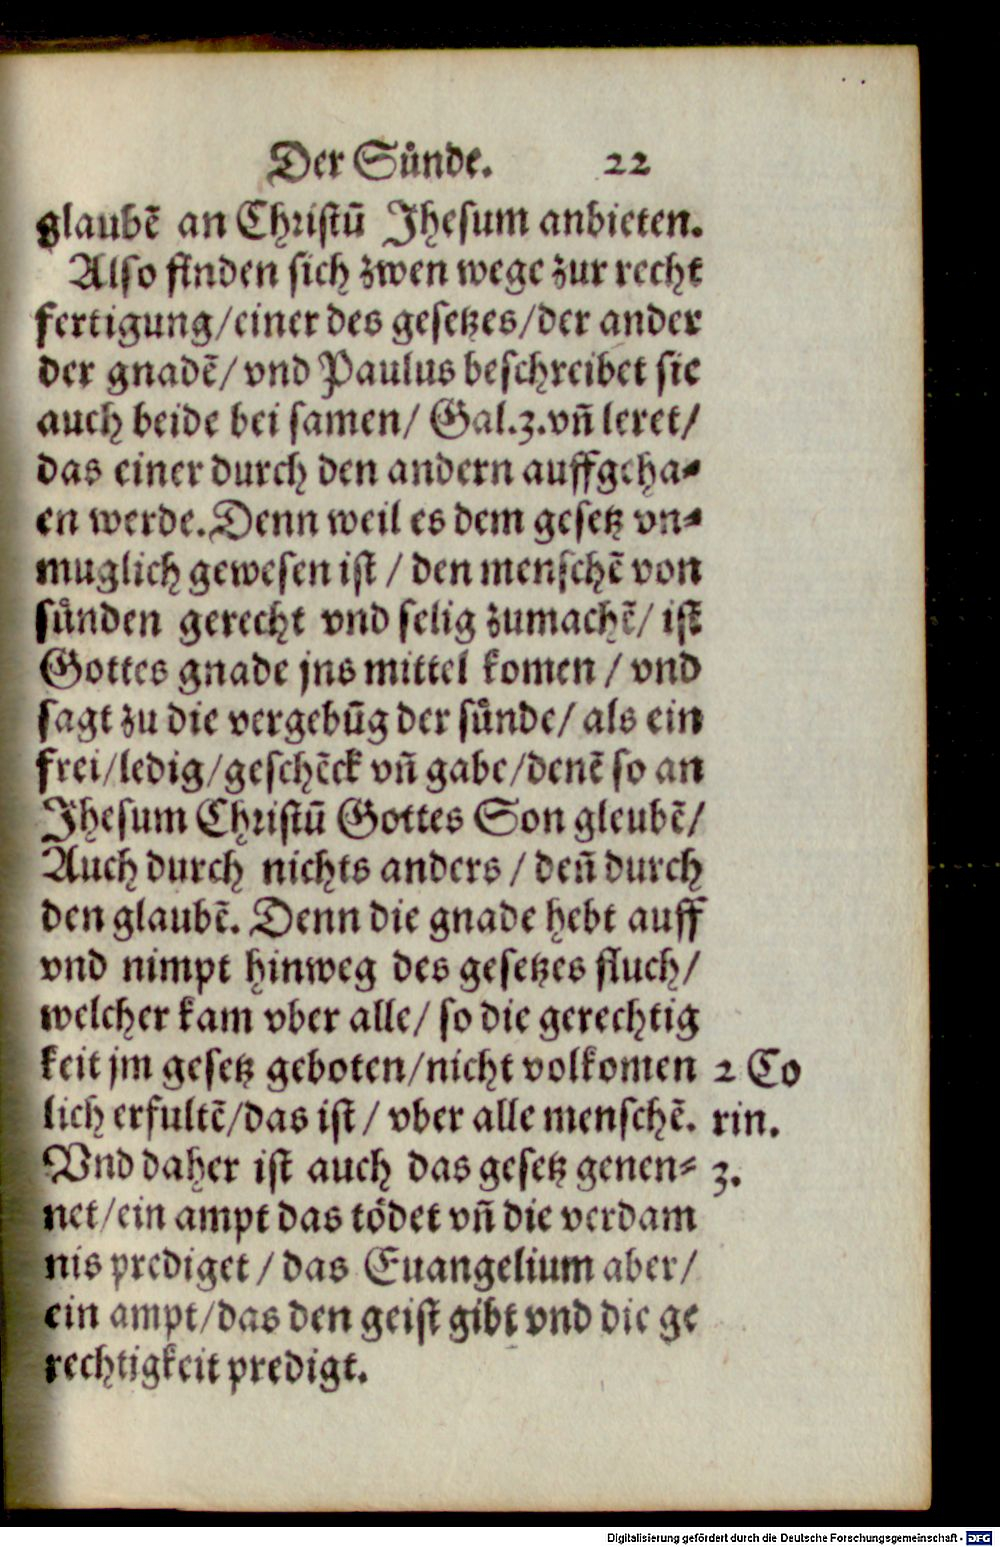 Der Sünde. 22
glaubẽ an Christũ Jhesum anbieten.
Also finden sich zwen wege zur recht
fertigung/einer des gesetzes/der ander
der gnadẽ/ vnd Paulus beschreibet sie
auch beide bei samen/ Gal.3.vñ leret/
das einer durch den andern auffgeha⸗
en werde. Denn weil es dem gesetz vn⸗
muglich gewesen ist / den menschẽ von
sünden gerecht vnd selig zumachẽ/ ist
Gottes gnade jns mittel komen / vnd
sagt zu die vergebũg der sünde/ als ein
frei/ledig/geschẽck vñ gabe/denẽ so an
Jhesum Christũ Gottes Son gleubẽ/
Auch durch nichts anders / deñ durch
den glaubẽ. Denn die gnade hebt auff
vnd nimpt hinweg des gesetzes fluch/
welcher kam vber alle/ so die gerechtig
keit jm gesetz geboten/nicht volkomen 2 Co
lich erfultẽ/das ist / vber alle menschẽ. rin.
Vnd daher ist auch das gesetz genen⸗ 3.
net/ein ampt das tödet vñ die verdam
nis prediget / das Euangelium aber/
ein ampt/das den geist gibt vnd die ge
rechtigkeit predigt.
Digitalisierung gefördert durch die Deutsche Forschungsgemeinschaft - DFG